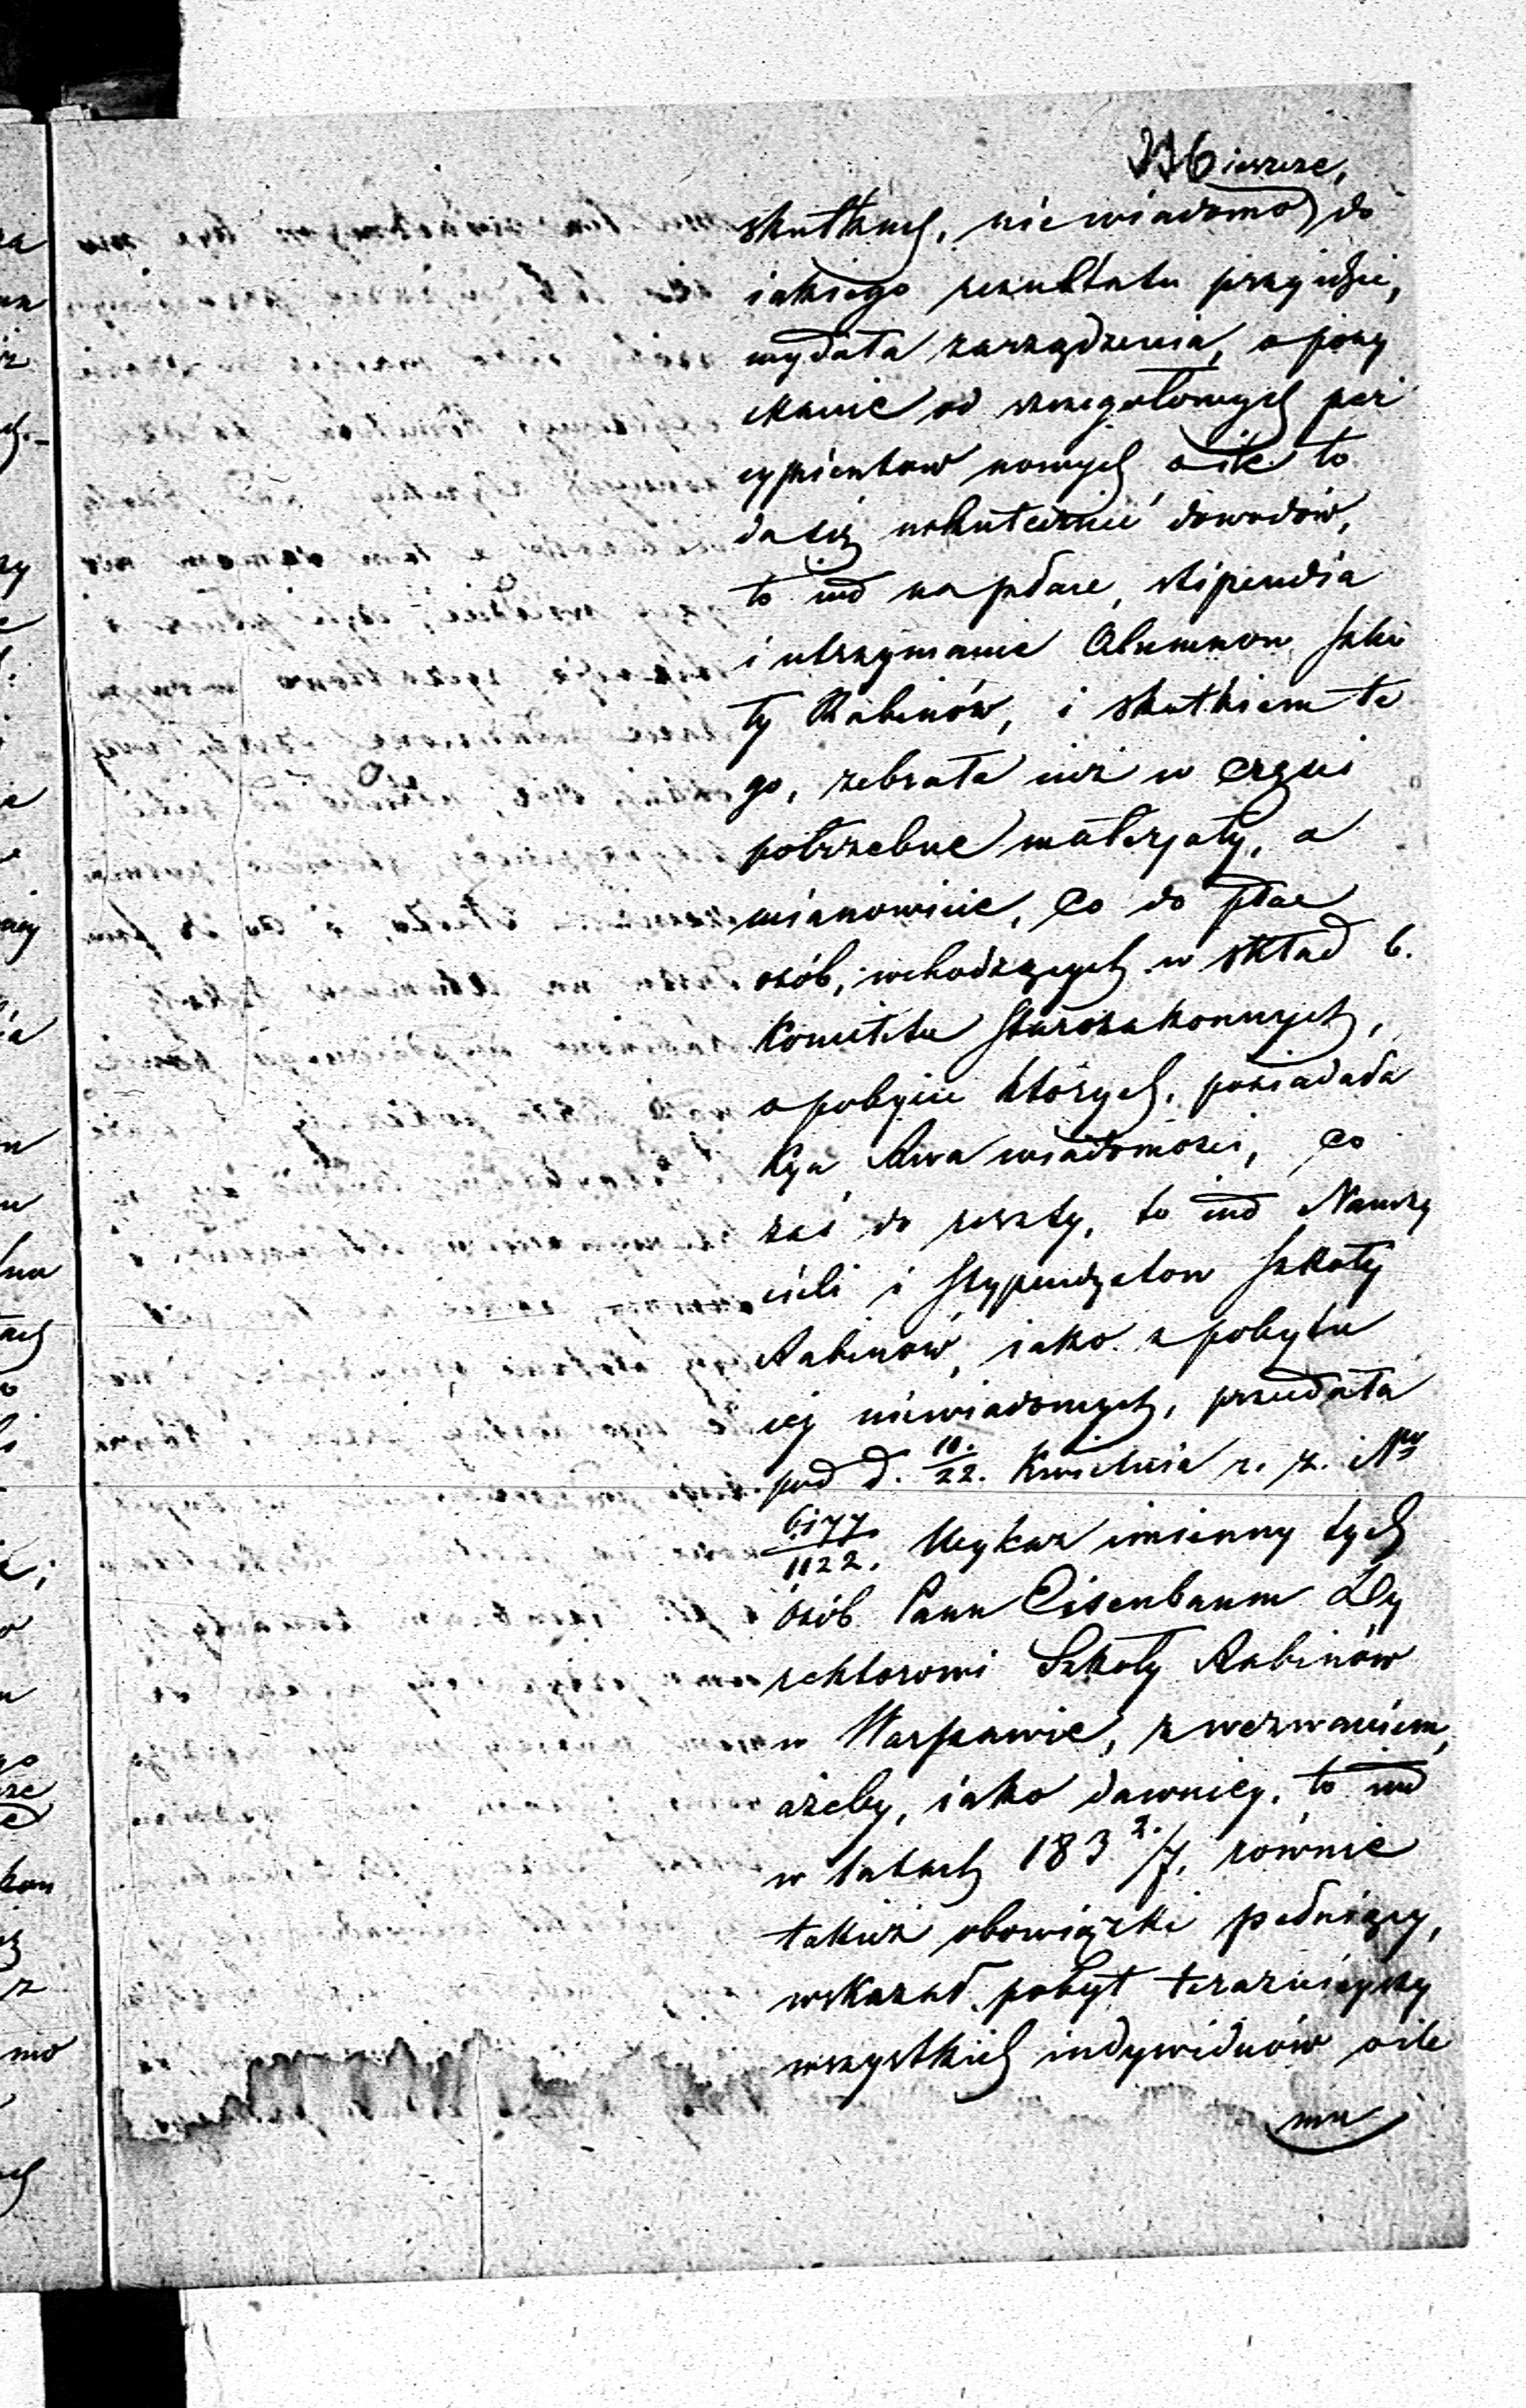 276 ieszcze,
skutkuć, niewiadomo do
iakiego rezultatu przyidzie,
wydała zarządzenia, o pozy
skanie od szczegołowych per
cypientow nowych o ile to
da się uskutecznić dowodów,
to iest na płace, stipendia
i utrzymanie Alumnow Szko
ły Rabinów, i skutkiem te
go, zebrała iuż w części
potrzebne materjały, a
mianowicie, co do płac
osób, wchodzących w skład b.
Komitetu Starozakonnych,
o pobycie których, posiadała
Kga Rwa wiadomości, co
zaś do reszty, to iest Nauczy
cieli i Stypendzstow Szkoły
Rabinów, iako z pobytu
iey niewiadomych, przesłała
pod d. 10./22. Kwietnia r. z. i Nr
6177./1122. Wykaz imienny tych
osób Panu Eisenbaum Dy
rektorowi Szkoły Rabinów
w Warszawie, z wezwaniem,
ażeby, iako dawniey, to iest
w latach 183 2./7. równie
takież obowiązki pełniący,
wskazał pobyt teraznieyszy
wszystkich indywiduów o ile
mu